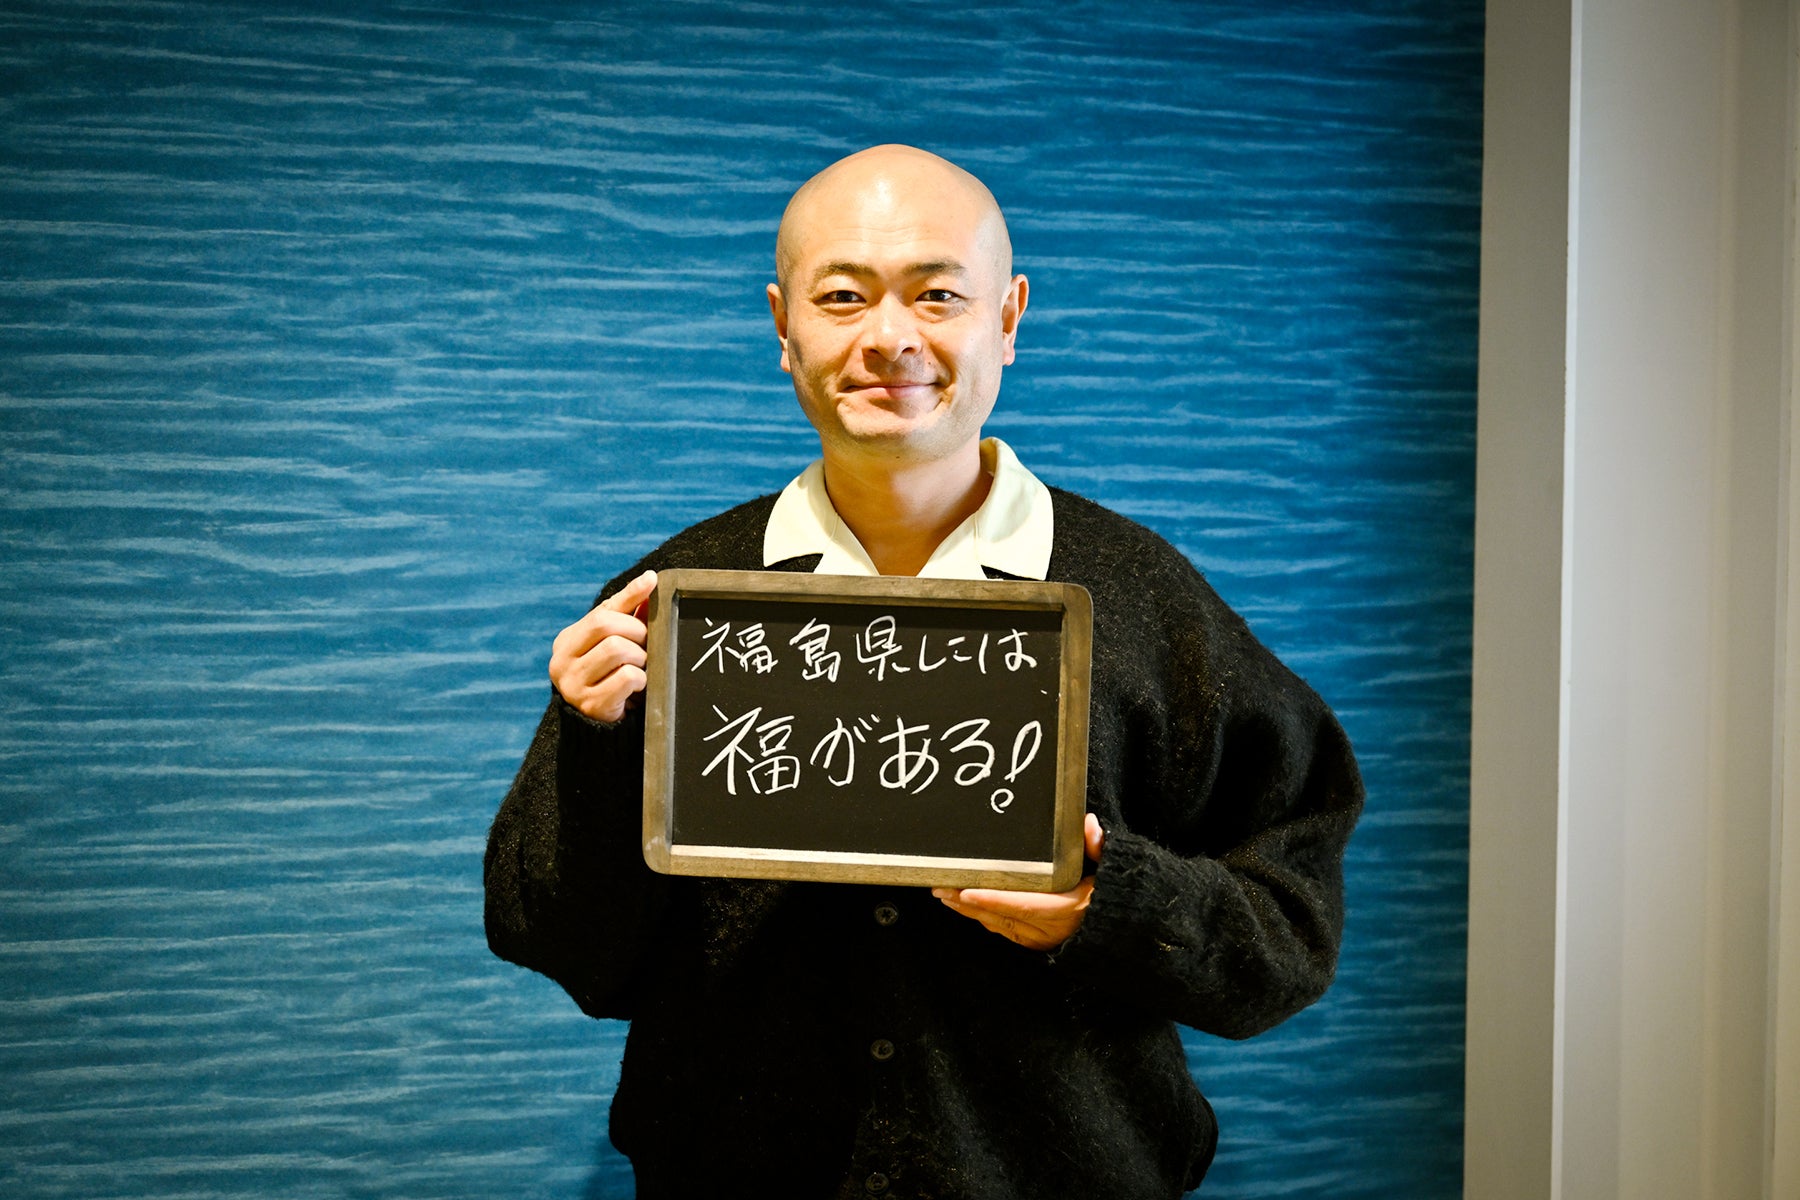 福島県には
福がある!